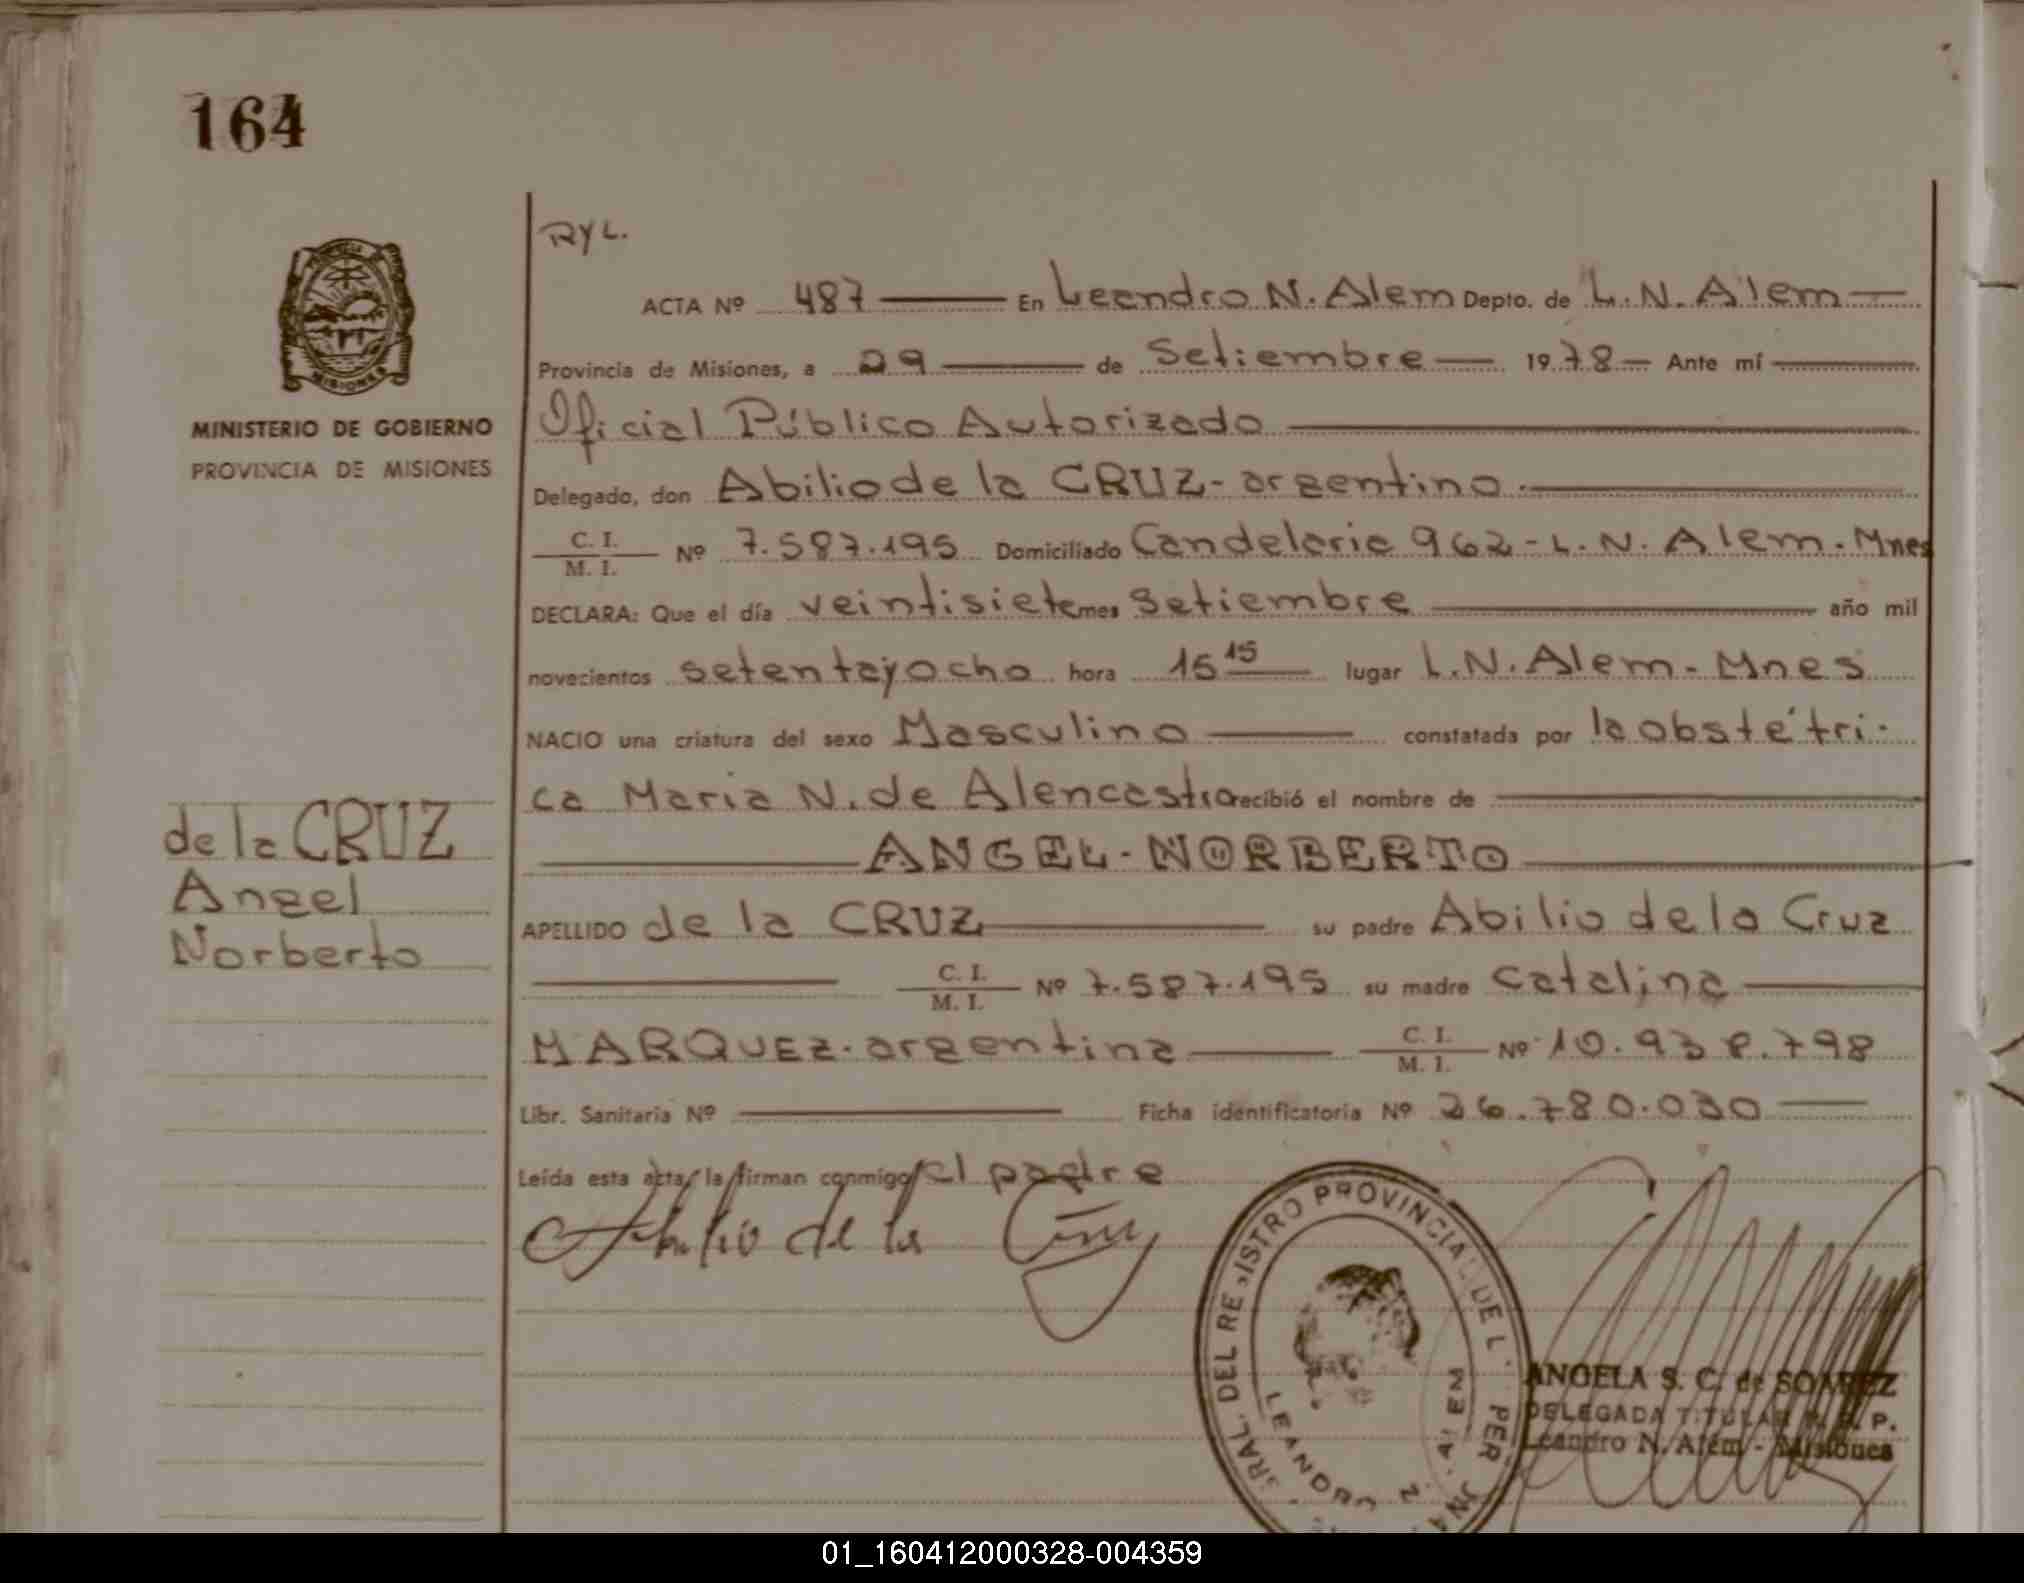 164
MINISTERIO DE GOBIERNO
PROVINCIA DE MISIONES
de la CRUZ
Angel
Norberto
RYL.
ACTA Nº 487 En Leandro N. Alem Depto. de L. N. Alem
Provincia de Misiones, a 29 de Setiembre 1978 Ante mí
Oficial Público Autorizado
Delegado, don Abilio de la CRUZ - argentino.
C. I.
M. I. Nº 7.587.195 Domiciliado Candelaria 962 - L. N. Alem. Mnes
DECLARA: Que el día veintisiete mes Setiembre año mil
novecientos setentayocho hora 15 15 lugar L.N. Alem - Mnes
NACIO una criatura del sexo Masculino constatada por la obstétri-
ca Maria N. de Alencastro recibió el nombre de
ANGEL - NORBERTO
APELLIDO de la CRUZ su padre Abilio de la Cruz
C. I.
M. I. Nº 7.587.195 su madre Catalina
MARQUEZ - argentina C. I.
M. I. Nº 10.938.798
Libr. Sanitaria Nº Ficha identificatoria Nº 26.780.030
Leída esta acta, la firman conmigo el padre
Abilio de la Cruz
MISIONES
REGISTRO PROVINCIAL DE L
LEANDRO N. ALEM
ANGELA S. C. de SOAREZ
DELEGADA TITULAR R. P.
Leandro N. Alem - Misiones
01_160412000328-004359